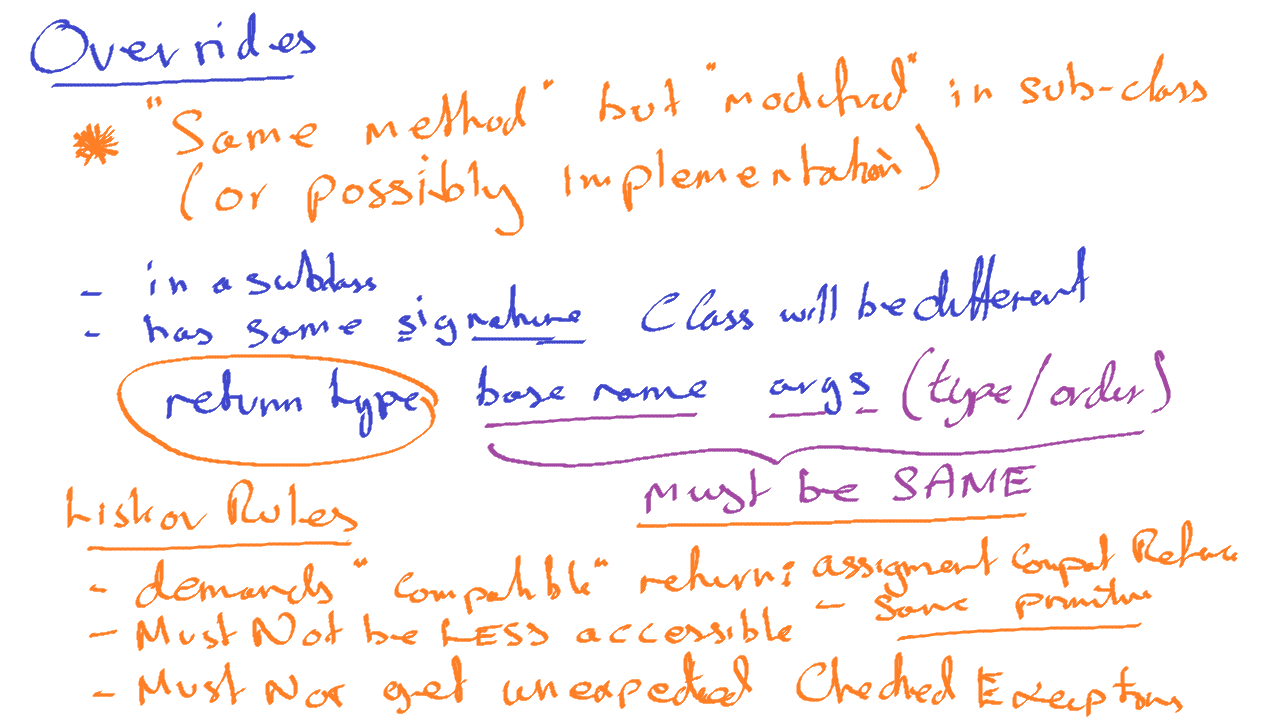 Overrides
"Same method" but "modified" in sub-class
(or possibly implementation)
- in a subclass
- has same signature Class will be different
return type base name args (type/order)
Must be SAME
Liskov Rules
- demands "compatible" return: assigment compat Refernce
- same primitive
- Must Not be LESS accessible
- Must Not get unexpected Checked Exceptions